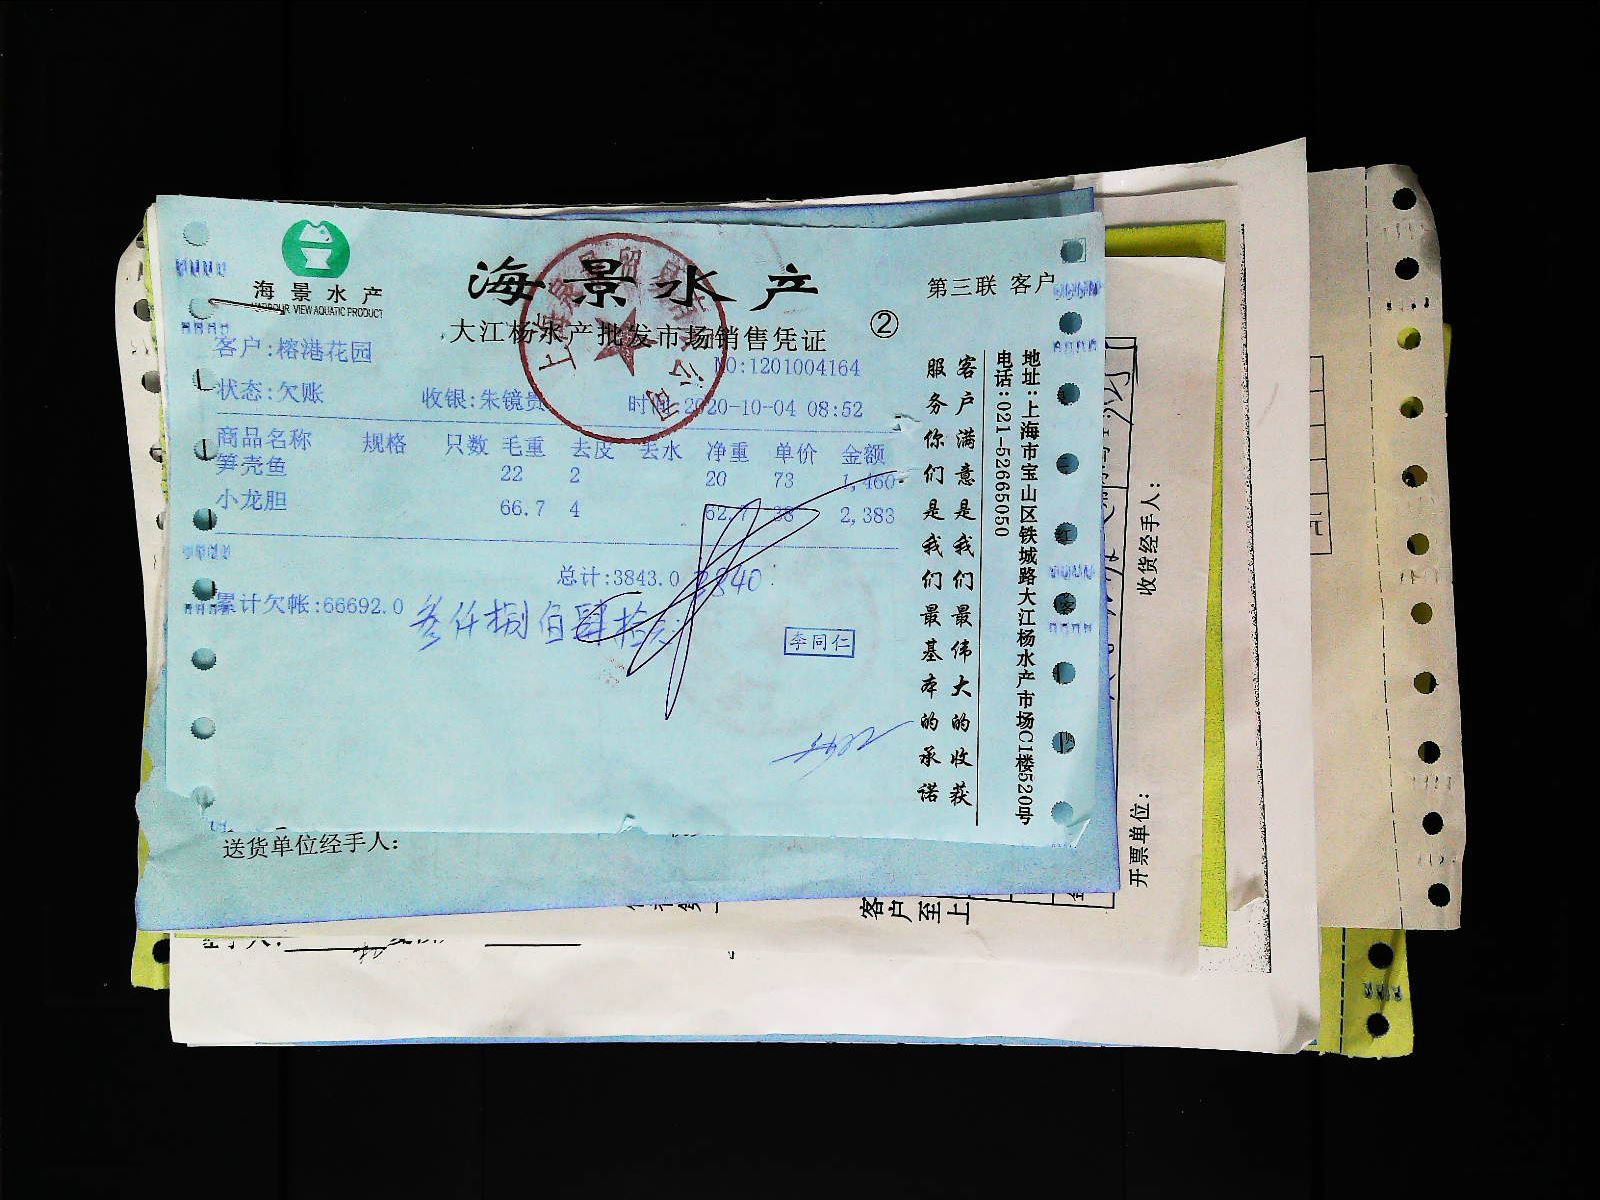 海景水产
HARBOUR VIEW AQUATIC PRODUCT
海景水产
第三联 客户
大江杨水产批发市场销售凭证
②
客户:榕港花园
NO:1201004164
状态:欠账 收银:朱镜贵 时间:2020-10-04 08:52
商品名称 规格 只数 毛重 去皮 去水 净重 单价 金额
笋壳鱼 22 2 20 73 1,460
小龙胆 66.7 4 62.7 38 2,383
总计:3843.0 3840
累计欠帐:66692.0
叁仟捌佰肆拾元
李同仁
客户满意是我们最伟大的收获
服务你们是我们最基本的承诺
地址:上海市宝山区铁城路大江杨水产市场C1楼520号
电话:021-52665050
送货单位经手人:
收货经手人:
开票单位:
客户至上